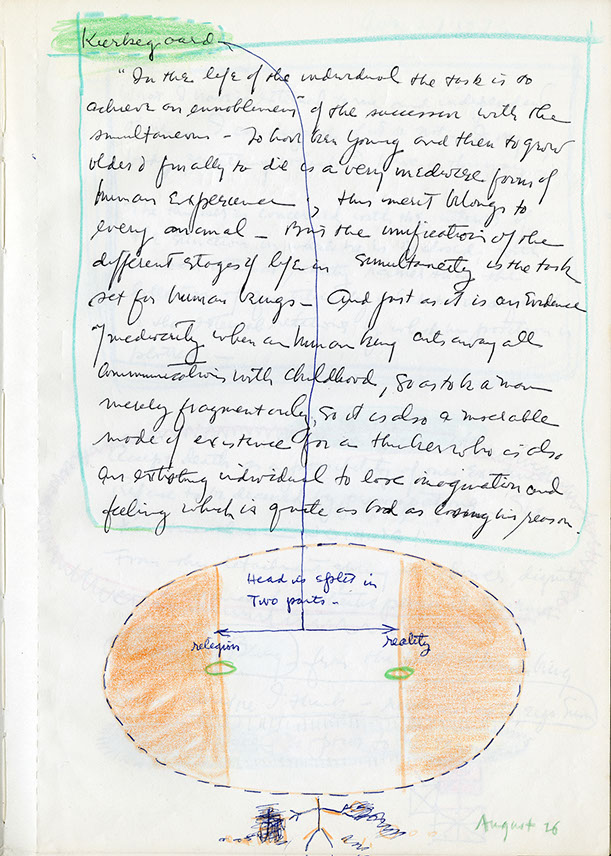 Kierkegaard
"In the life of the individual the task is to
achieve an ennoblement" of the successive with the
simultaneous - To have been young and then to grow
older & finally to die is a very mediocre form of
human experience, this merit belongs to
every animal - But the unification of the
different stages of life in simultaneity is the task
set for human beings - And just as it is an evidence
of mediocrity when a human being cuts away all
communications with childhood, so as to be a man
merely fragmentarily, so it is also a miserable
mode of existence for a thinker who is also
an existing individual to lose imagination and
feeling which is quite as bad as losing his reason.
Head is split in
Two parts -
religion reality
August 26